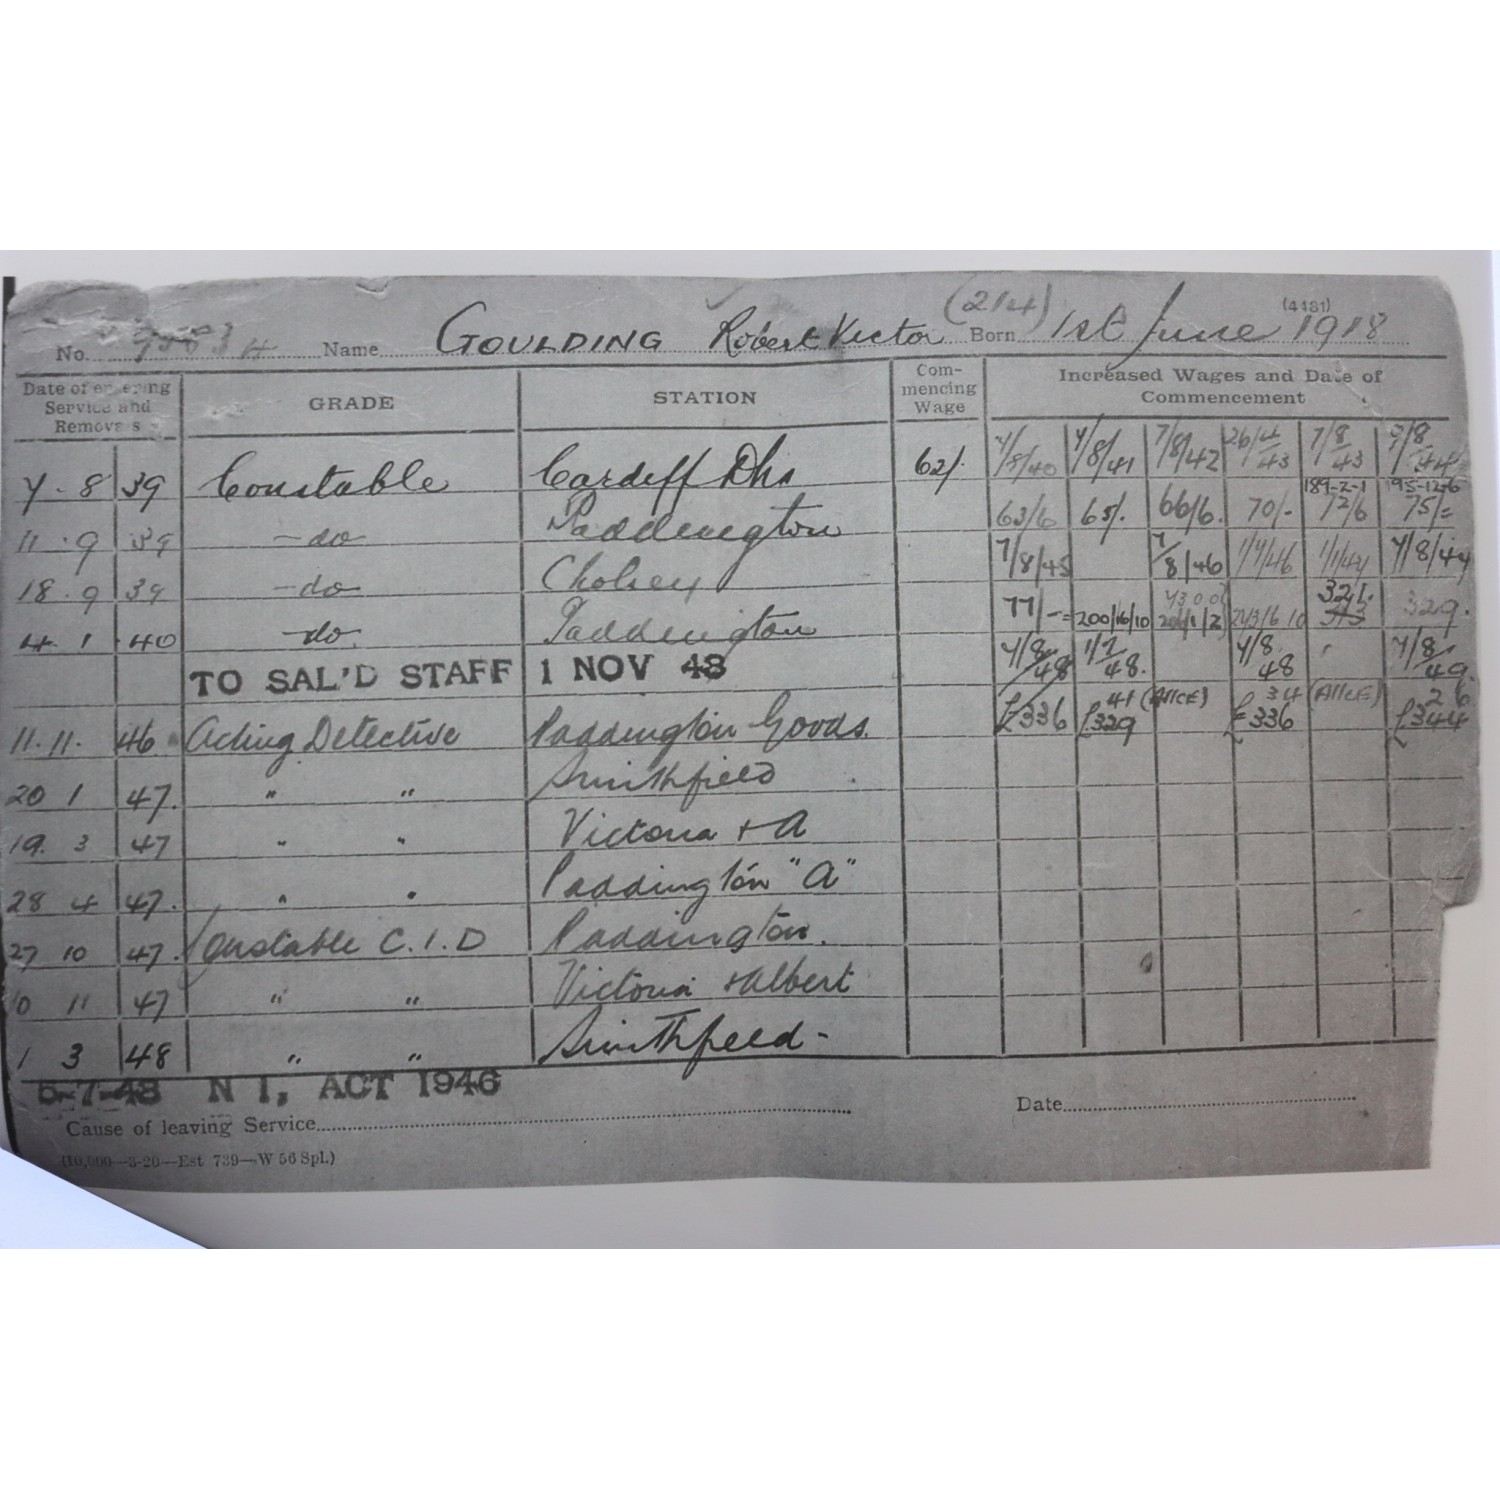 (214) (4181)
No. Name GOULDING Robert Victor Born 1st June 1918
Date of entering Service and Removals GRADE STATION Commencing Wage Increased Wages and Date of Commencement
7/8/40 7/8/41 7/8/42 26/4/43 7/8/43 7/8/44
7 . 8 39 Constable Cardiff Dks 62/.
189-2-1 195-12-6
63/6 65/. 66/6. 70/- 72/6 75/=
11 . 9 39 -do- Paddington
7/8/45 7/8/46 1/7/46 1/1/47 7/8/47
18 . 9 39 -do- Cholsey
77/-= 200/16/10 321. 313 329.
4. 1 40 -do- Paddington
TO SAL'D STAFF 1 NOV 48
7/8/48 1/7/48. 7/8/48 7/8/49.
£336 £329 41 (Allce) £336 34 (Allce) £344 26
11. 11. 46 Acting Detective Paddington Goods.
20 1 47. " " Smithfield
19. 3 47 " " Victoria + A
28 4 47. " " Paddington "A"
27 10 47. Constable C.I.D Paddington.
10 11 47 " " Victoria + Albert
1 3 48 " " Smithfield -
5-7-48 N I, ACT 1946
Cause of leaving Service Date
(10,000—3-20—Est 739—W 56 Spl.)